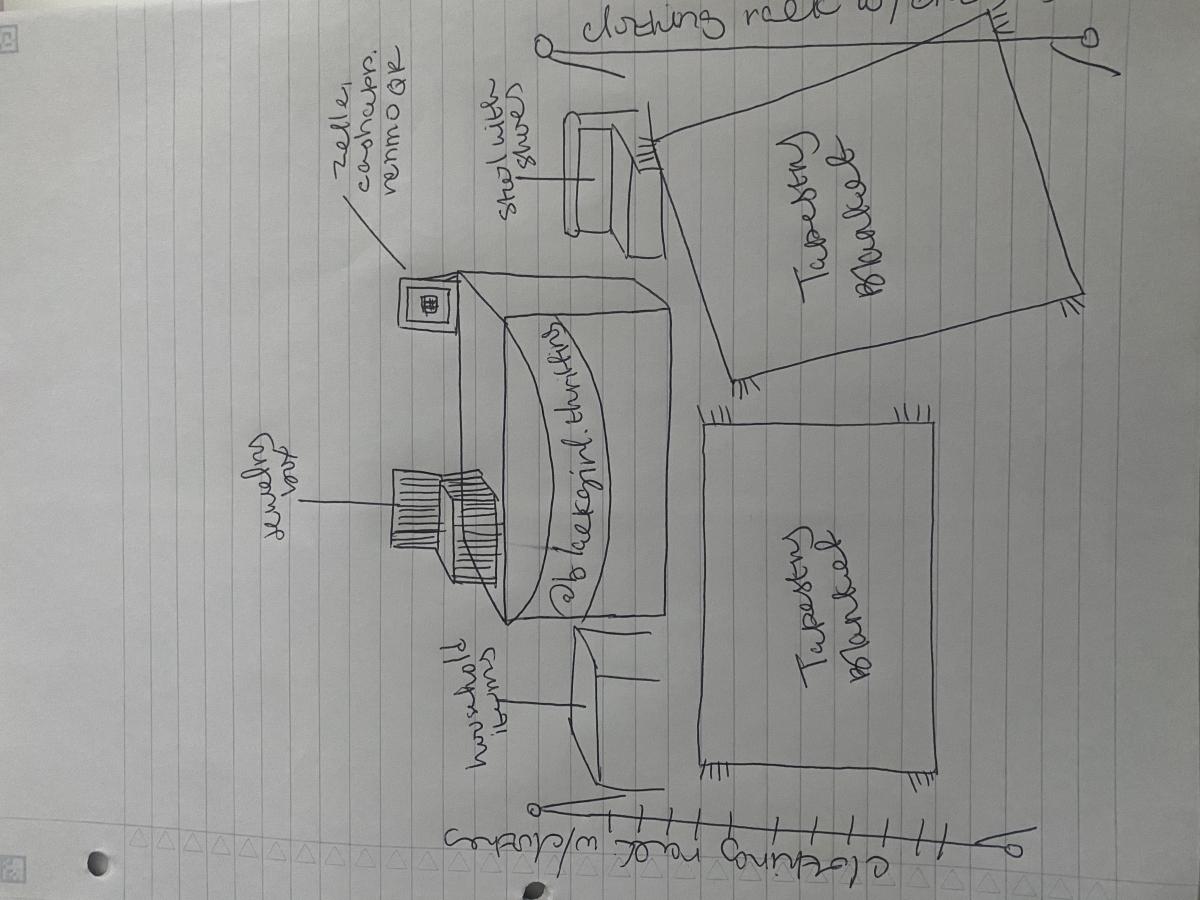 zelle,
cashapp.
venmo QR
jewelry
box
stool with
shoes
household
items
@blackgirl.thrifting
Tapestry
Blanket
Tapestry
Blanket
clothing rack w/clothes
clothing rack w/